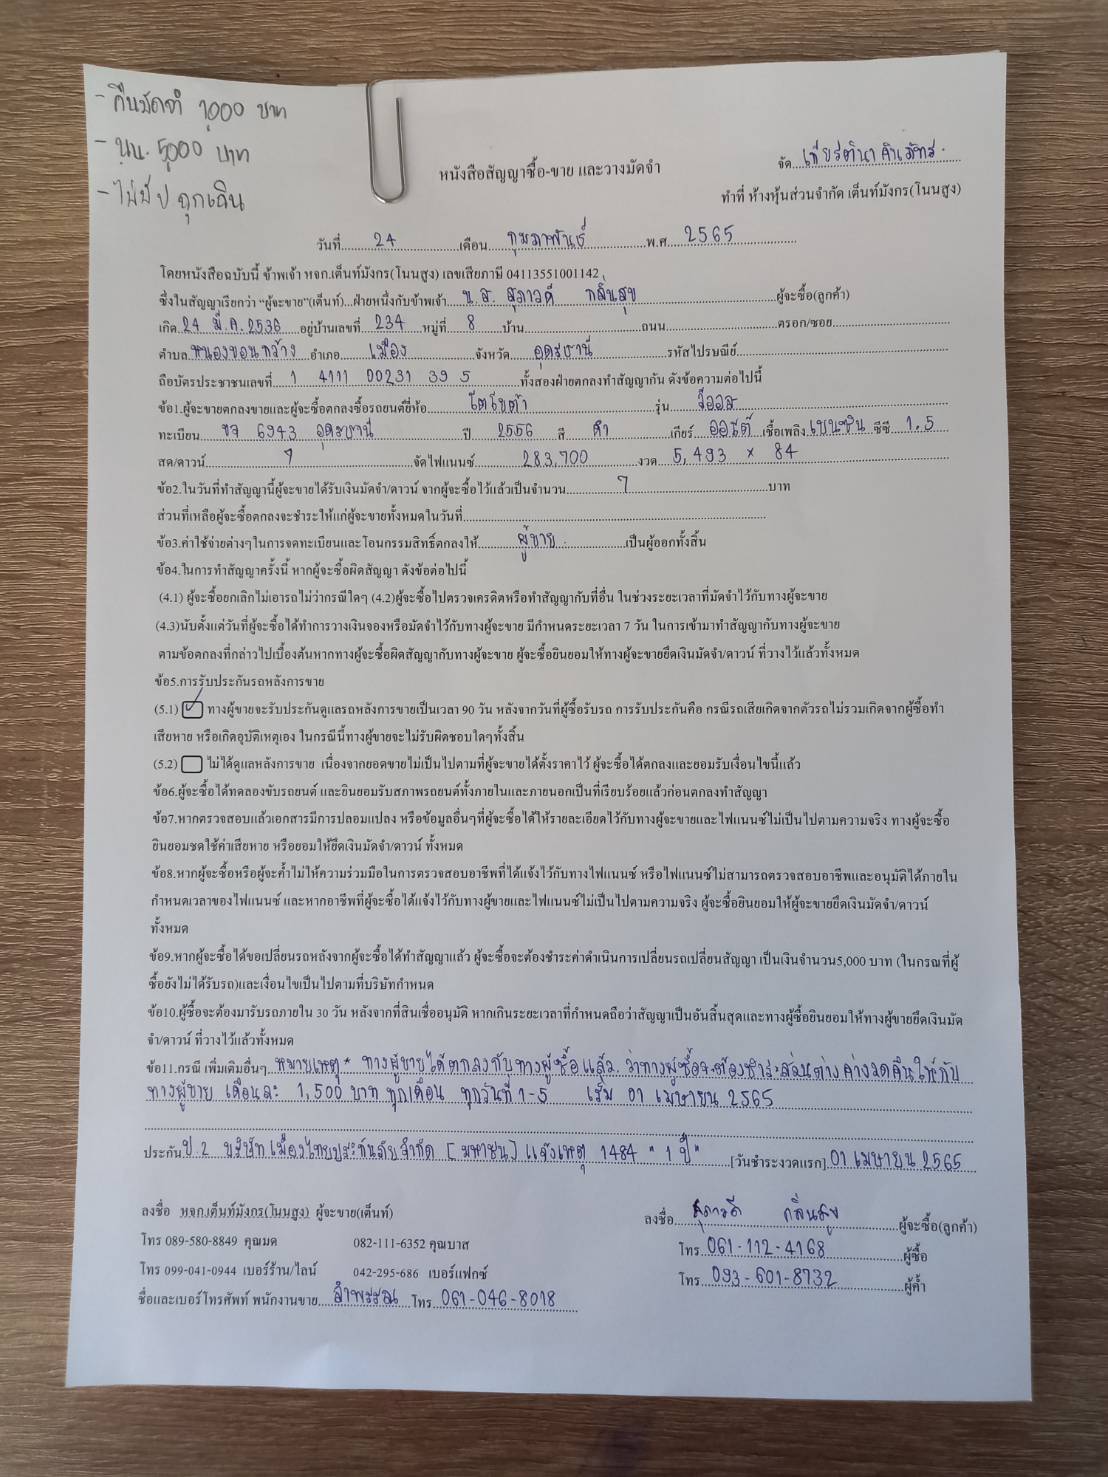 - คืนมัดจำ 1,000 บาท
- นน. 5,000 บาท
- ไม่มีป ฉุกเฉิน
จัด
หนังสือสัญญาซื้อ-ขาย และวางมัดจำ
ทำที่ ห้างหุ้นส่วนจำกัด เต็นท์มังกร(โนนสูง)
วันที่ 24 เดือน กุมภาพันธ์ พ.ศ 2565
โดยหนังสือฉบับนี้ ข้าพเจ้า หจก.เต็นท์มังกร(โนนสูง) เลขเสียภาษี 04113551001142
ซึ่งในสัญญาเรียกว่า "ผู้จะขาย"(เต็นท์)...ฝ่ายหนึ่งกับข้าพเจ้า น.ส. สุภาวดี กลิ่นสุข ผู้จะซื้อ(ลูกค้า)
เกิด 24 มี.ค. 2536 อยู่บ้านเลขที่ 234 หมู่ที่ 8 บ้าน ถนน ตรอก/ซอย
ตำบล หนองขอนกว้าง อำเภอ เมือง จังหวัด อุดรธานี รหัสไปรษณีย์
ถือบัตรประชาชนเลขที่ 1 4111 00231 39 5 ทั้งสองฝ่ายตกลงทำสัญญากัน ดังข้อความต่อไปนี้
ข้อ1.ผู้จะขายตกลงขายและผู้จะซื้อตกลงซื้อรถยนต์ยี่ห้อ โตโยต้า รุ่น วีออส
ทะเบียน ขจ 6943 อุดรธานี ปี 2556 สี ดำ เกียร์ ออโต้ เชื้อเพลิง เบนซิน ซีซี 1.5
สด/ดาวน์ ๆ จัดไฟแนนซ์ 283,700 งวด 5,493 x 84
ข้อ2.ในวันที่ทำสัญญานี้ผู้จะขายได้รับเงินมัดจำ/ดาวน์ จากผู้จะซื้อไว้แล้วเป็นจำนวน ๆ บาท
ส่วนที่เหลือผู้จะซื้อตกลงจะชำระให้แก่ผู้จะขายทั้งหมดในวันที่
ข้อ3.ค่าใช้จ่ายต่างๆในการจดทะเบียนและโอนกรรมสิทธิ์ตกลงให้ ผู้ขาย เป็นผู้ออกทั้งสิ้น
ข้อ4.ในการทำสัญญาครั้งนี้ หากผู้จะซื้อผิดสัญญา ดังข้อต่อไปนี้
(4.1) ผู้จะซื้อยกเลิกไม่เอารถไม่ว่ากรณีใดๆ (4.2)ผู้จะซื้อไปตรวจเครดิตหรือทำสัญญากับที่อื่น ในช่วงระยะเวลาที่มัดจำไว้กับทางผู้จะขาย
(4.3)นับตั้งแต่วันที่ผู้จะซื้อได้ทำการวางเงินจองหรือมัดจำไว้กับทางผู้จะขาย มีกำหนดระยะเวลา 7 วัน ในการเข้ามาทำสัญญากับทางผู้จะขาย
ตามข้อตกลงที่กล่าวไปเบื้องต้นหากทางผู้จะซื้อผิดสัญญากับทางผู้จะขาย ผู้จะซื้อยินยอมให้ทางผู้จะขายยึดเงินมัดจำ/ดาวน์ ที่วางไว้แล้วทั้งหมด
ข้อ5.การรับประกันรถหลังการขาย
(5.1) ทางผู้ขายจะรับประกันดูแลรถหลังการขายเป็นเวลา 90 วัน หลังจากวันที่ผู้ซื้อรับรถ การรับประกันคือ กรณีรถเสียเกิดจากตัวรถไม่รวมเกิดจากผู้ซื้อทำ
เสียหาย หรือเกิดอุบัติเหตุเอง ในกรณีนี้ทางผู้ขายจะไม่รับผิดชอบใดๆทั้งสิ้น
(5.2) ไม่ได้ดูแลหลังการขาย เนื่องจากยอดขายไม่เป็นไปตามที่ผู้จะขายได้ตั้งราคาไว้ ผู้จะซื้อได้ตกลงและยอมรับเงื่อนไขนี้แล้ว
ข้อ6.ผู้จะซื้อได้ทดลองขับรถยนต์ และยินยอมรับสภาพรถยนต์ทั้งภายในและภายนอกเป็นที่เรียบร้อยแล้วก่อนตกลงทำสัญญา
ข้อ7.หากตรวจสอบแล้วเอกสารมีการปลอมแปลง หรือข้อมูลอื่นๆที่ผู้จะซื้อได้ให้รายละเอียดไว้กับทางผู้จะขายและไฟแนนซ์ไม่เป็นไปตามความจริง ทางผู้จะซื้อ
ยินยอมชดใช้ค่าเสียหาย หรือยอมให้ยึดเงินมัดจำ/ดาวน์ ทั้งหมด
ข้อ8.หากผู้จะซื้อหรือผู้จะค้ำไม่ให้ความร่วมมือในการตรวจสอบอาชีพที่ได้แจ้งไว้กับทางไฟแนนซ์ หรือไฟแนนซ์ไม่สามารถตรวจสอบอาชีพและอนุมัติได้ภายใน
กำหนดเวลาของไฟแนนซ์ และหากอาชีพที่ผู้จะซื้อได้แจ้งไว้กับทางผู้ขายและไฟแนนซ์ไม่เป็นไปตามความจริง ผู้จะซื้อยินยอมให้ผู้จะขายยึดเงินมัดจำ/ดาวน์
ทั้งหมด
ข้อ9.หากผู้จะซื้อได้ขอเปลี่ยนรถหลังจากผู้จะซื้อได้ทำสัญญาแล้ว ผู้จะซื้อจะต้องชำระค่าดำเนินการเปลี่ยนรถเปลี่ยนสัญญา เป็นเงินจำนวน5,000 บาท (ในกรณที่ผู้
ซื้อยังไม่ได้รับรถ)และเงื่อนไขเป็นไปตามที่บริษัทกำหนด
ข้อ10.ผู้ซื้อจะต้องมารับรถภายใน 30 วัน หลังจากที่สินเชื่ออนุมัติ หากเกินระยะเวลาที่กำหนดถือว่าสัญญาเป็นอันสิ้นสุดและทางผู้ซื้อยินยอมให้ทางผู้ขายยึดเงินมัด
จำ/ดาวน์ ที่วางไว้แล้วทั้งหมด
ข้อ11.กรณี เพิ่มเติมอื่นๆ หมายเหตุ* ทางผู้ขายได้ตกลงกับทางผู้ซื้อแล้ว ว่าทางผู้ซื้อจะต้องชำระส่วนต่างค่างวดคืนให้กับ
ทางผู้ขาย เดือนละ 1,500 บาท ทุกเดือน ทุกวันที่ 1-5 เริ่ม 01 เมษายน 2565
ประกัน ป 2 บริษัท เมืองไทยประกันภัยจำกัด [มหาชน] แจ้งเหตุ 1484 "1 ปี" [วันชำระงวดแรก] 01 เมษายน 2565
ลงชื่อ หจก.เต็นท์มังกร(โนนสูง) ผู้จะขาย(เต็นท์)
ลงชื่อ สุภาวดี กลิ่นสุข ผู้จะซื้อ(ลูกค้า)
โทร 089-580-8849 คุณมด 082-111-6352 คุณบาส
โทร 061-112-4168 ผู้ซื้อ
โทร 099-041-0944 เบอร์ร้าน/ไลน์ 042-295-686 เบอร์แฟกซ์
โทร 093-601-8732 ผู้ค้ำ
ชื่อและเบอร์โทรศัพท์ พนักงานขาย ลำพรรณ โทร 061-046-8018